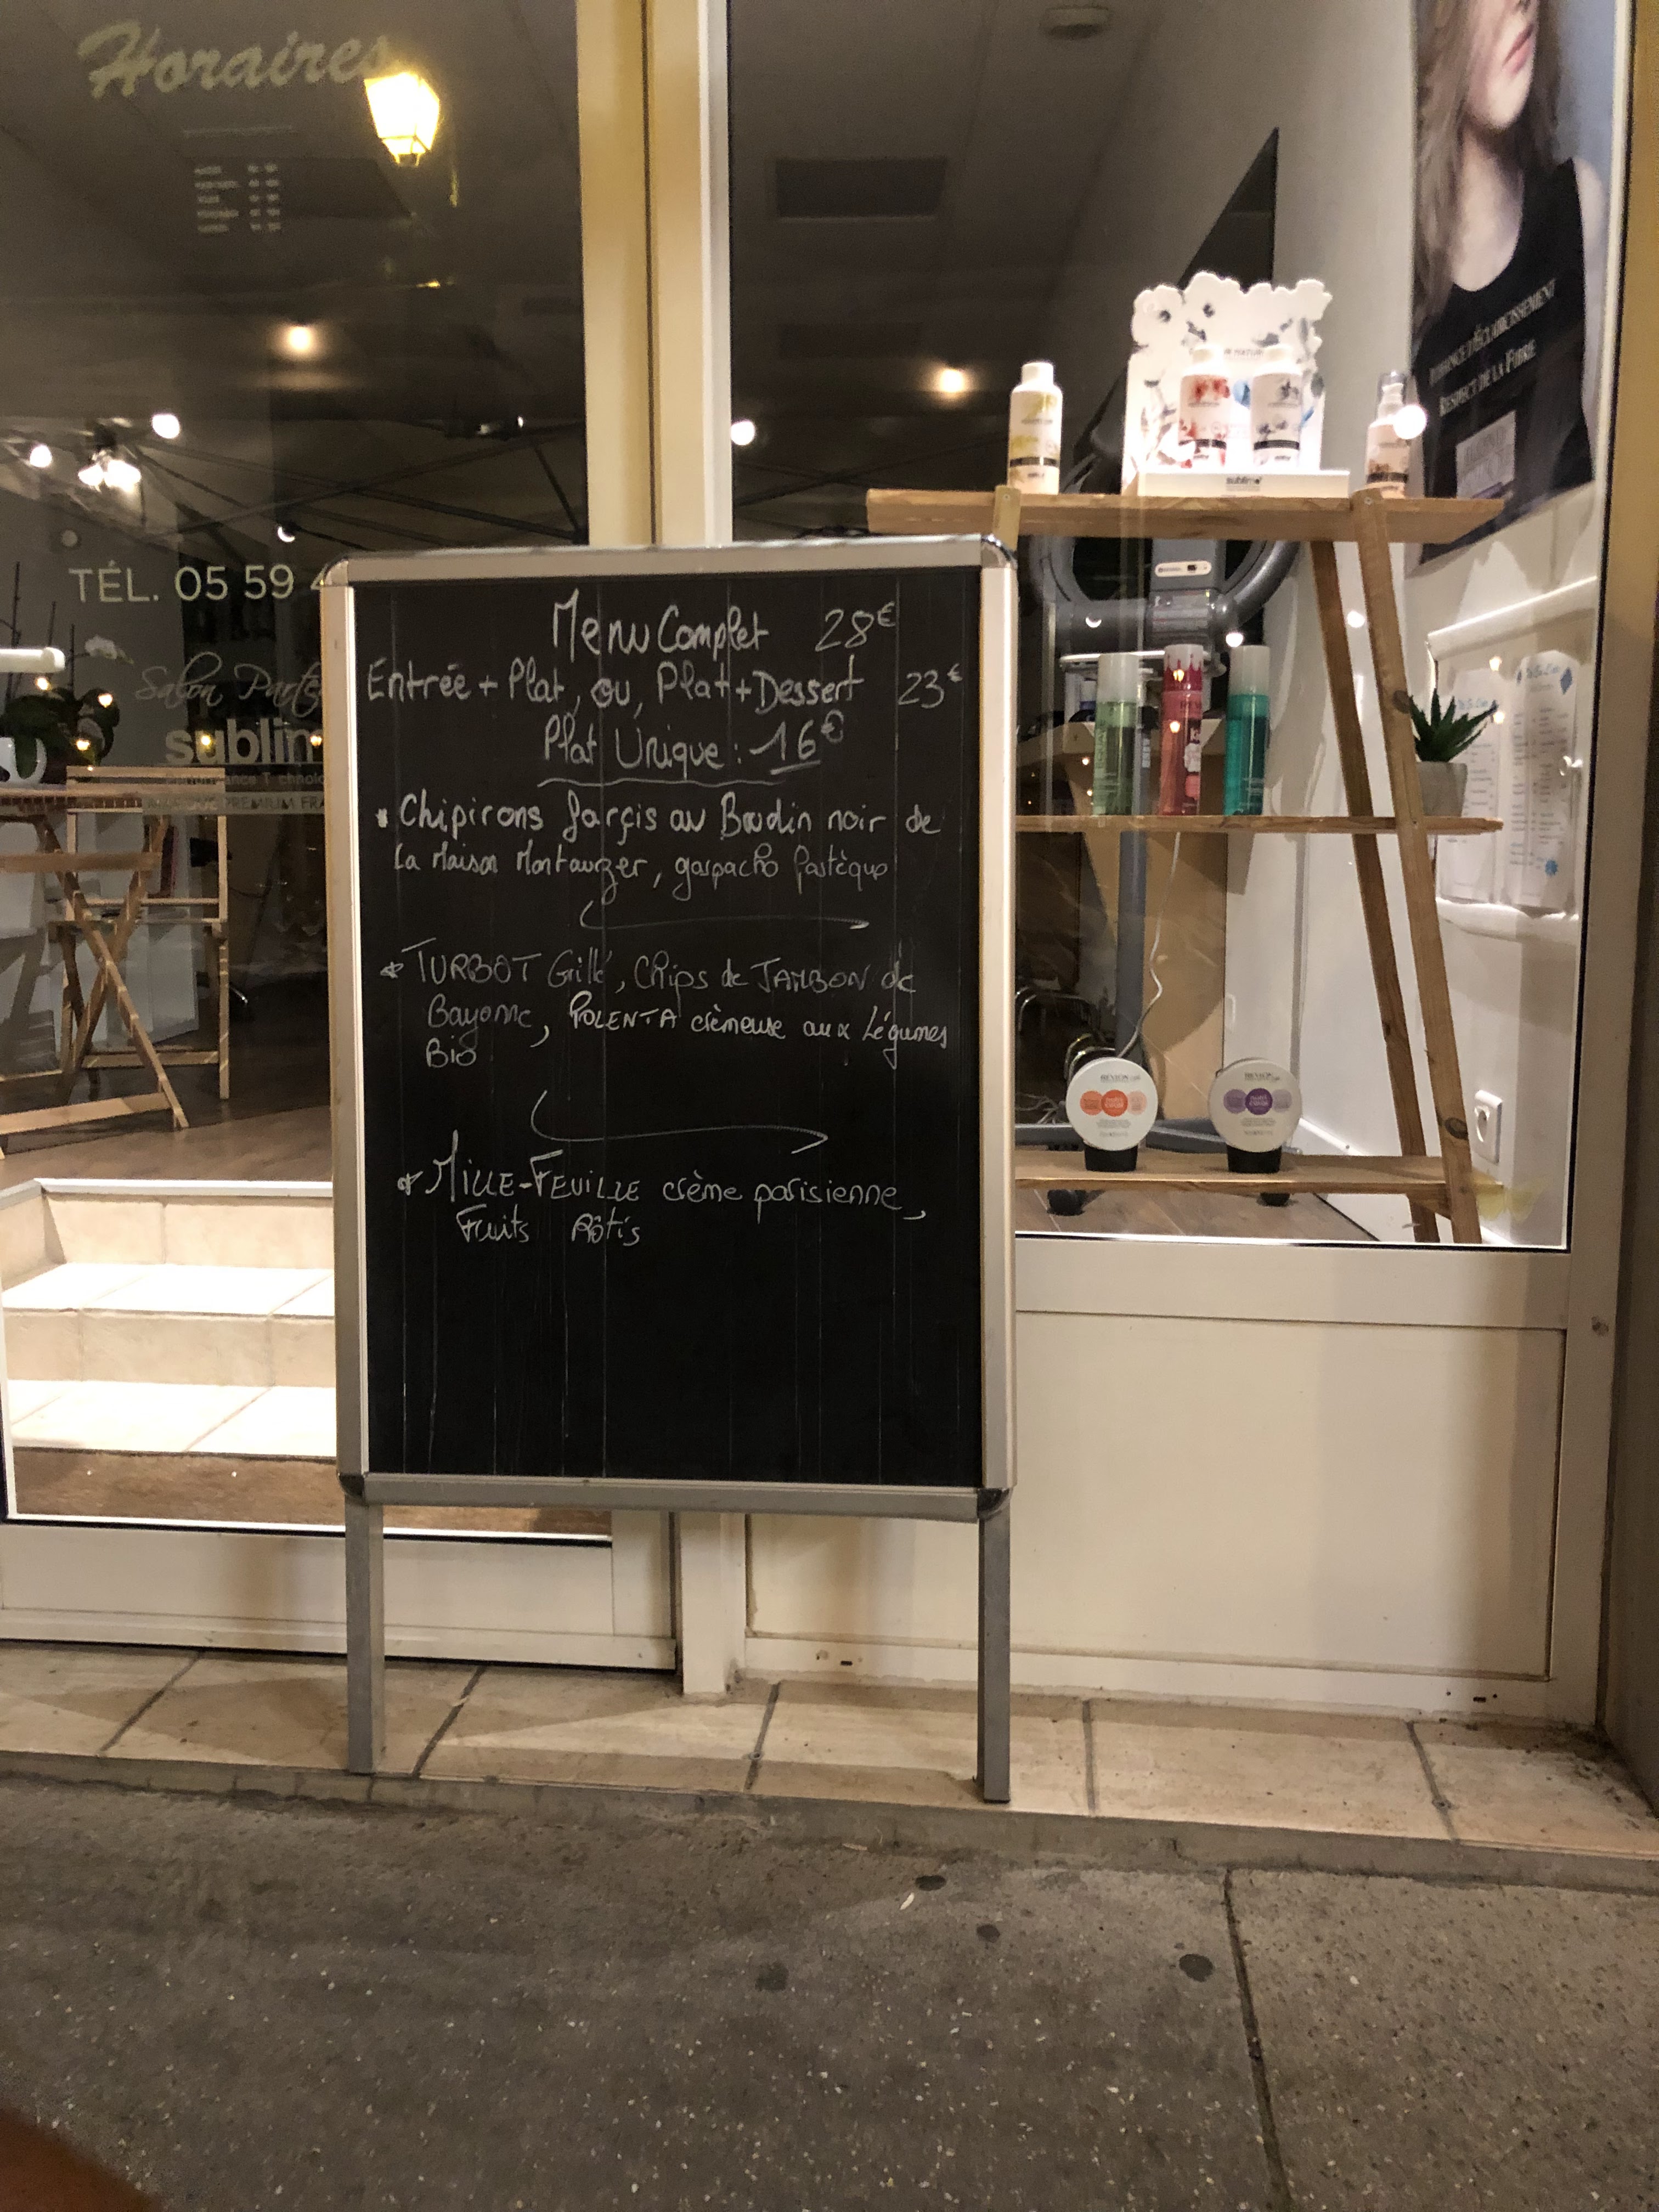 Horaires
TÉL. 05 59 4
Salon Parte
sublim
PREMIUM FRA
Menu Complet 28€
Entrée + Plat, ou, Plat + Dessert 23€
Plat Unique : 16€
* Chipirons farçis au Boudin noir de
La Maison Montauzer, gaspacho Pastèque
* TURBOT Grillé, Chips de JAMBON de
Bayonne, POLENTA crèmeuse aux Légumes
Bio
* MILLE-FEUILLE crème parisienne,
Fruits Rôtis
D'ÉCLAIRCISSEMENT
RESPECT DE LA FIBRE
sublimo
REVLON
REVLON